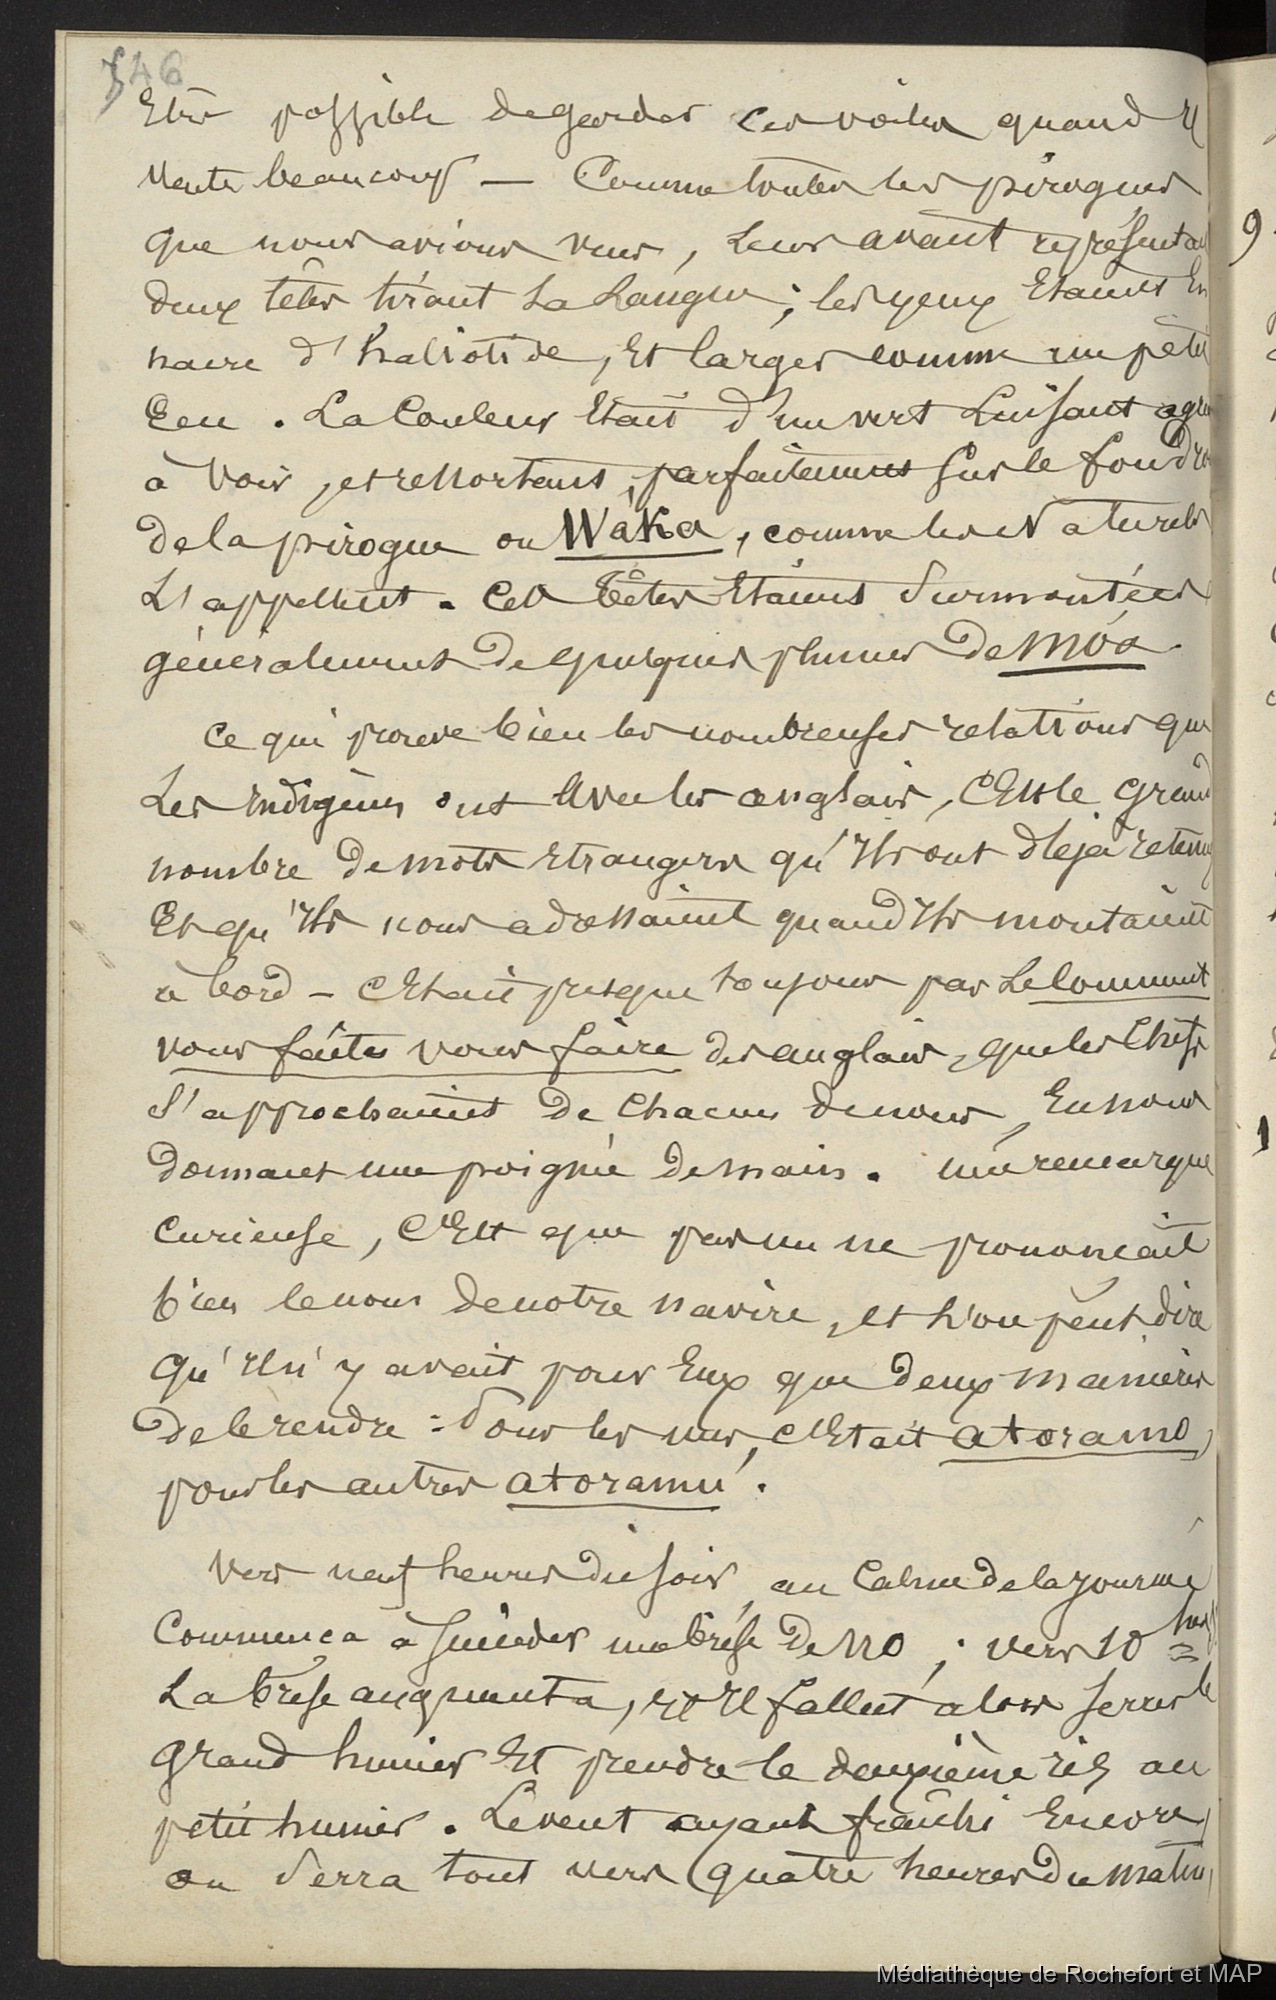 346
Etre possible de garder ces voiles quand il
vente beaucoup — Comme toutes les pirogues
que nous avions vues, leur avant représentait
deux têtes tirant la langue ; les yeux Etaient En
nacre d'haliotide, Et larges comme un petit
Ecu . La Couleur Etait d'un vert Luisant
à voir, et ressortant, parfaitement sur le fond
de la pirogue ou Waka, comme les Naturels
L'appellent . Ces Têtes Etaient surmontées
généralement de quelques plumes de Móa
Ce qui prouve bien les nombreuses relations que
Les Indigènes ont Avec les anglais, C'Est le grand
nombre de mots Etrangers qu'Ils ont déjà retenu
Et qu'Ils nous adressaient quand Ils montaient
à bord – C'Etait presque toujours par Le Comment
vous faites vous faire des anglais, que les Chefs
S'approchaient de Chacun de nous, En nous
donnant une poignée de main . une remarque
Curieuse, C'Est que pas un ne prononçait
bien le nom de notre navire, et L'on peut dire
qu'Il n'y avait pour Eux que deux manières
de le rendre : Pour les uns, C'Etait atoramo,
pour les autres atoramu .
Vers neuf heures du soir, au Calme de la journée
Commença à succéder une brise de NO, ; vers 10 heures
La brise augmenta, et Il fallut alors serrer le
grand hunier Et prendre le deuxième ris au
petit hunier . Le vent ayant fraîchi Encore,
on serra tout vers quatre heures du matin,
9
1
Médiathèque de Rochefort et MAP